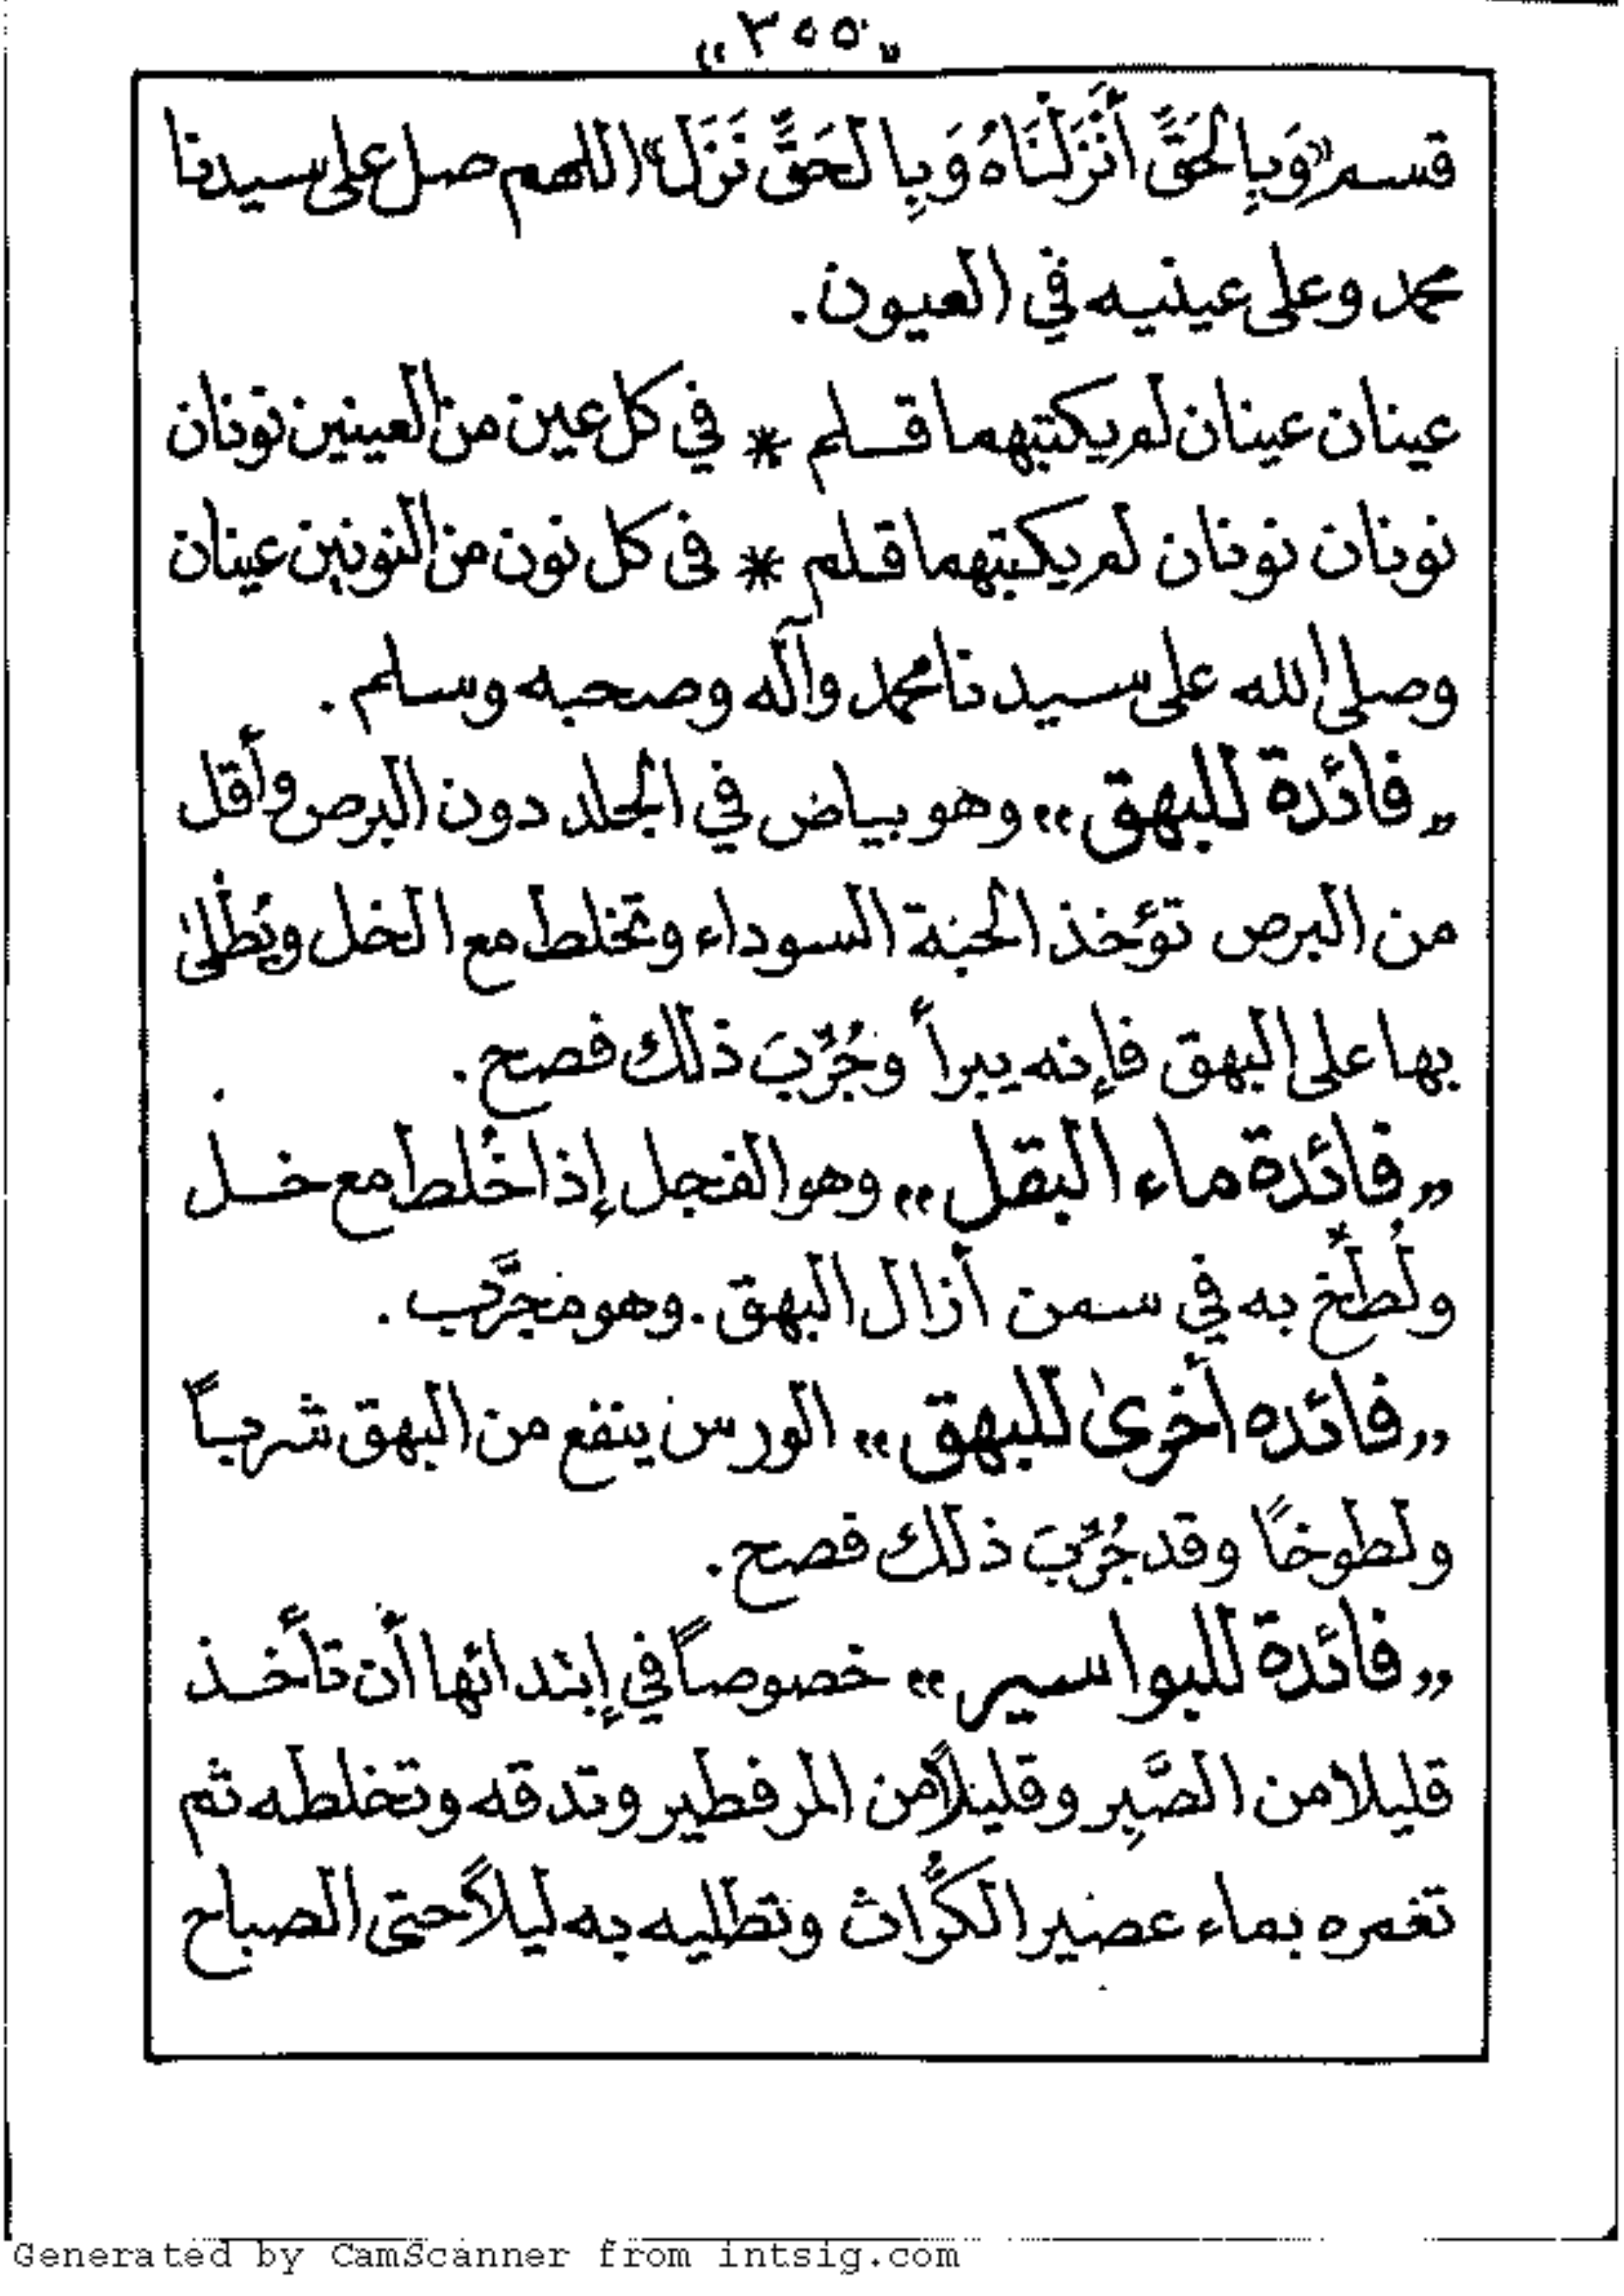 «٣٥٥»
قسم «وَبِالحَقِّ أَنْزَلْنَاهُ وَبِالحَقِّ نَزَلَ» اللهم صل على سيدنا
محمد وعلى عينيه في العيون.
عينان عينان لم يكتبهما قلم * في كل عين من العينين نونان
نونان نونان لم يكتبهما قلم * في كل نون من النونين عينان
وصلى الله على سيدنا محمد وآله وصحبه وسلم.
«فائدة للبهق» وهو بياض في الجلد دون البرص وأقل
من البرص تؤخذ الحبة السوداء وتخلط مع الخل ويُطْلىٰ
بها على البهق فإنه يبرأ وجُرِّبَ ذلك فصح.
«فائدة ماء البقل» وهو الفجل إذا خُلط مع خل
ولُطِّخ به في سمن أزال البهق. وهو مجرَّب.
«فائده أخرىٰ للبهق» الورس ينفع من البهق شرباً
ولطوخاً وقد جُرِّبَ ذلك فصح.
«فائدة للبواسير» خصوصاً في إبتدائها أن تأخذ
قليلا من الصَّبِر وقليلاً من المر فطير وتدقه وتخلطه ثم
تغمره بماء عصير الكرَّاث وتطليه به ليلاً حتى الصباح
Generated by CamScanner from intsig.com